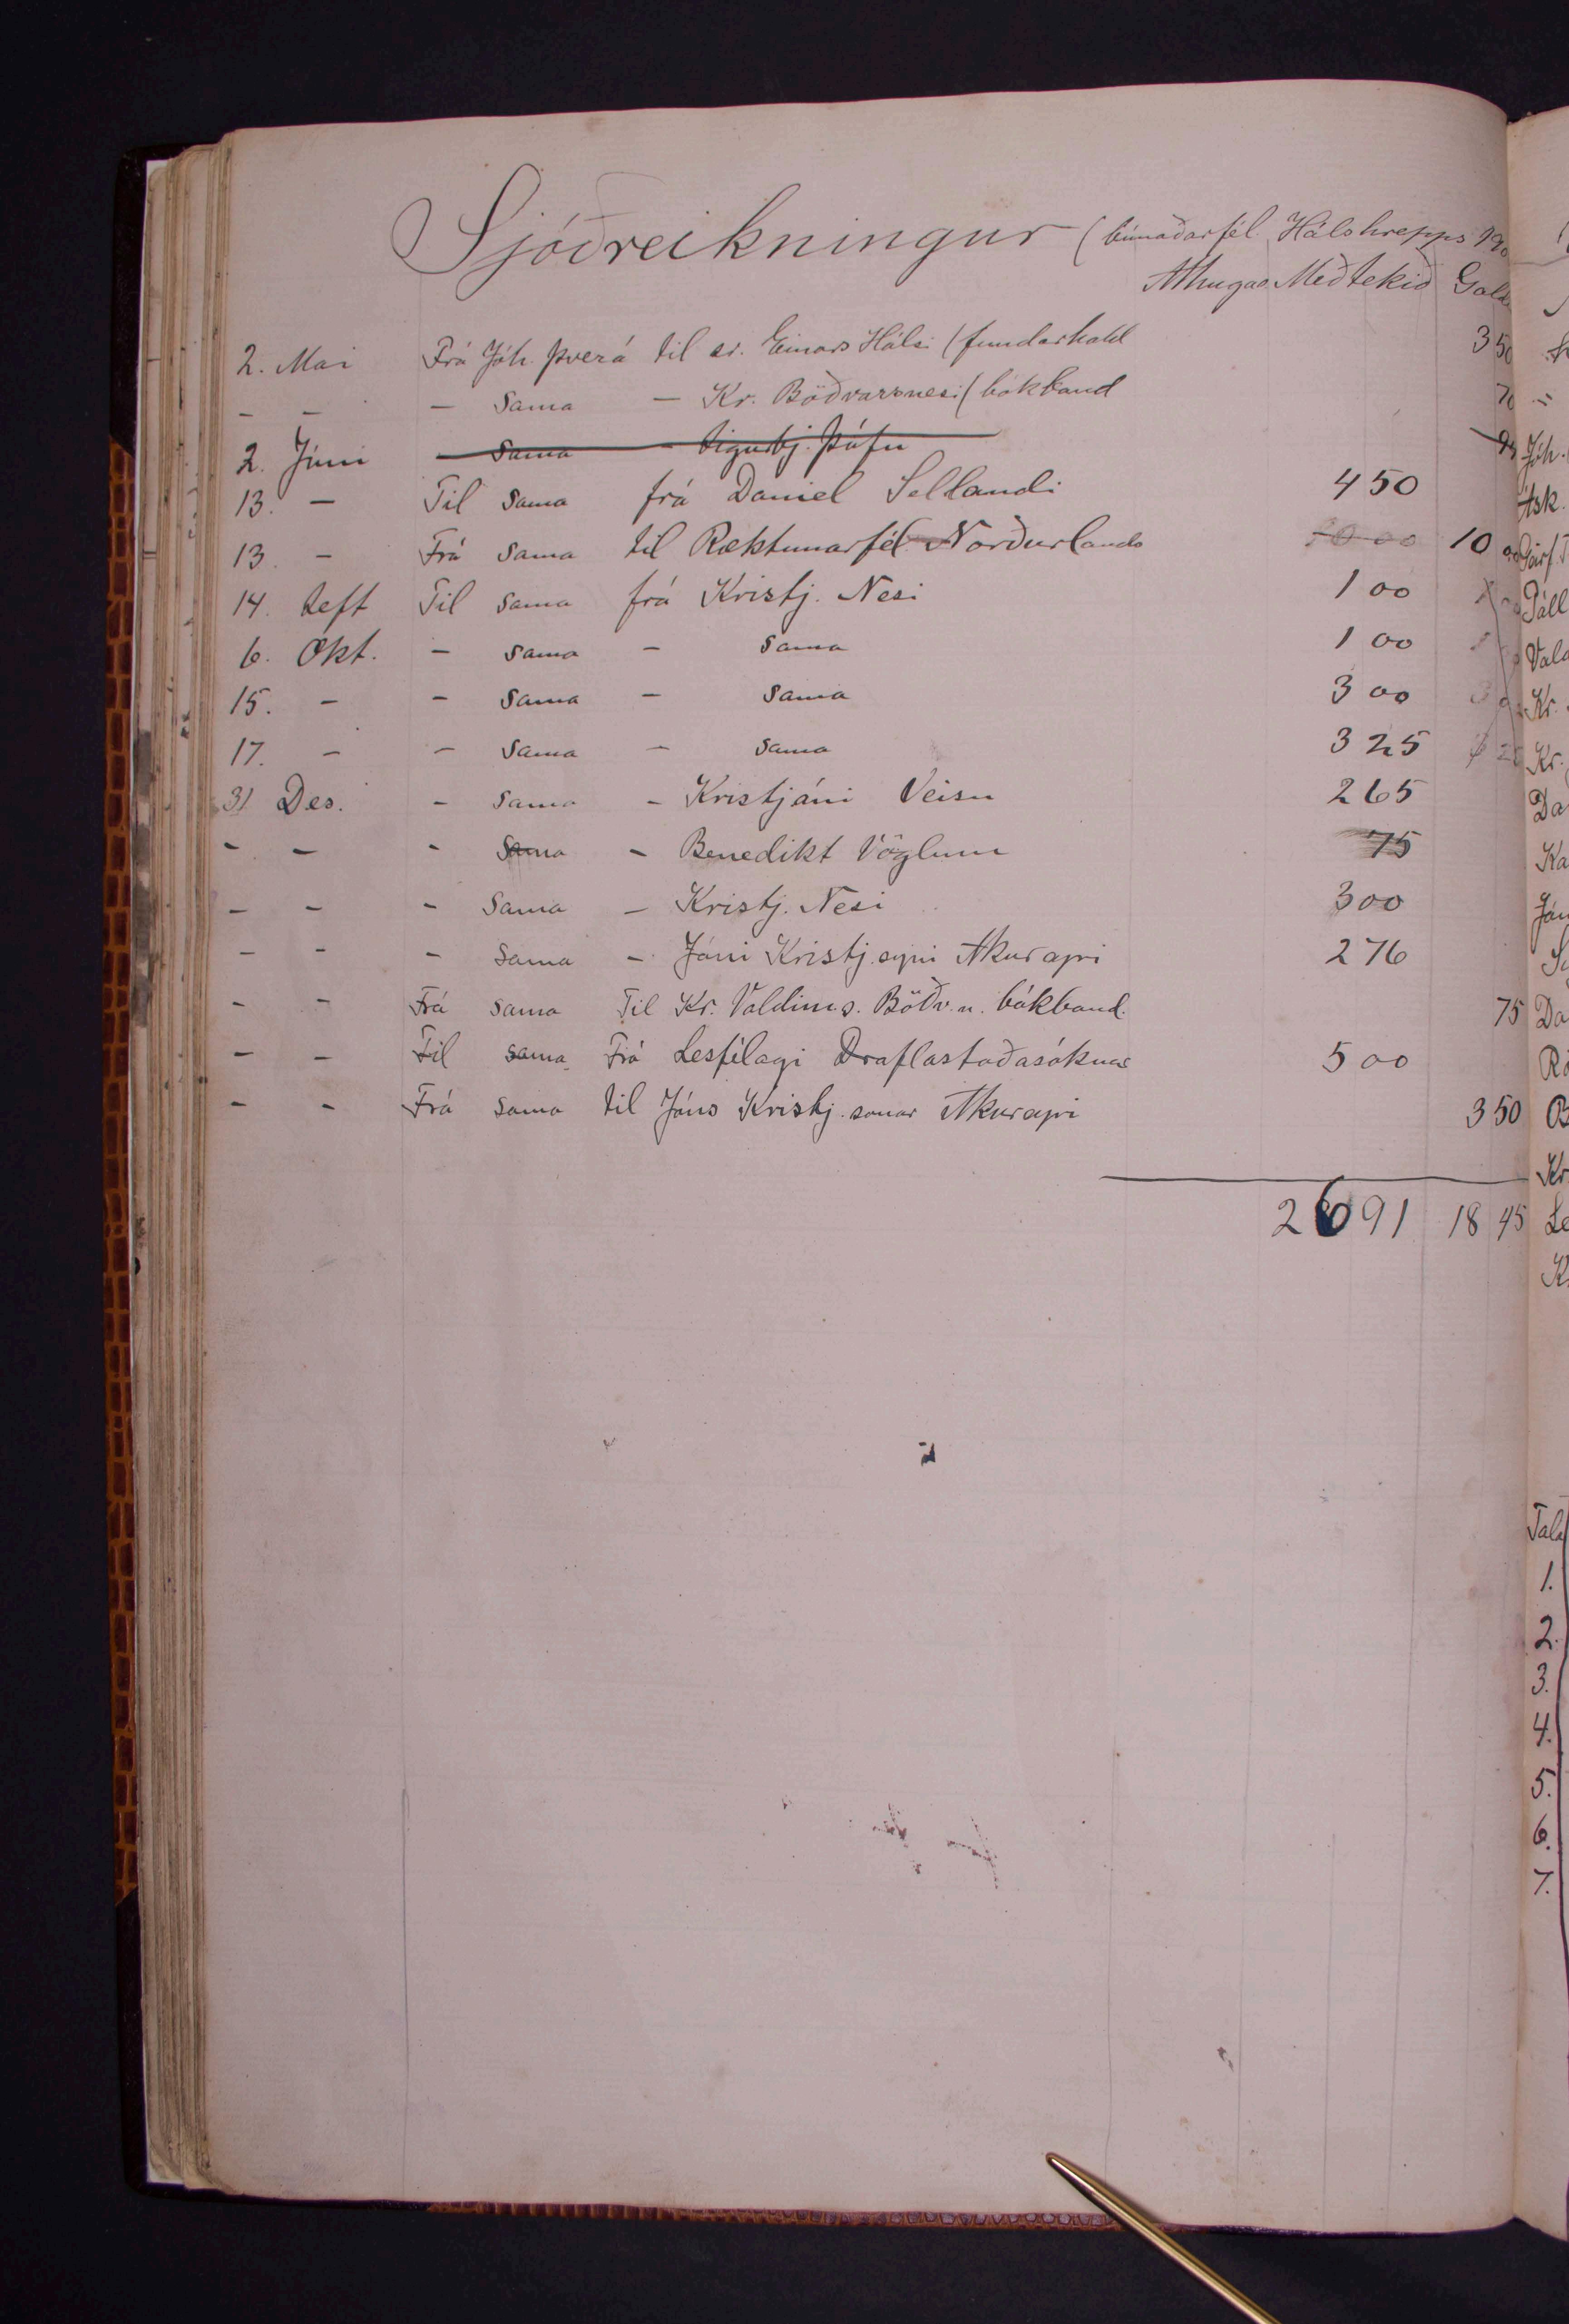 Sjóðreikningur (búnaðarfél. Hálshrepps 190
Athugas. Meðtekið Gold
2. Mai Frá Jóh. Þverá til sr. Einars Hálsi (fundarhald 3 50
- - - Sama - Kr. Böðvarsnesi (bókband 70
2. Júni - Sama - Sigurbj. Þúfu
13. - Til Sama frá Daniel Sellandi 4 50
13. - Frá Sama til Ræktunarfél. Norðurlands 10 00 10 00
14. Sept Til Sama frá Kristj. Nesi 1 00
6. Okt. - Sama - Sama 1 00
15. - - Sama - Sama 3 00
17. - - Sama - Sama 3 25
31 Des. - Sama - Kristjáni Veisu 2 65
- - - Sama - Benedikt Vöglum 75
- - - Sama - Kristj. Nesi 3 00
- - - Sama - Jóni Kristj.syni Akureyri 2 76
- - Frá Sama Til Kr. Valdim.s. Böðv.n. bókband. 75
- - Til Sama Frá Lesfélagi Draflastaðasóknar 5 00
- - Frá Sama til Jóns Kristj.sonar Akureyri 3 50
26 91 18 45
Jóh.
Ásk.
Páll
Vald
Kr.
Kr.
Da
Ka
Jón
Da
B
Kr
Le
K
Tala
1.
2.
3.
4.
5.
6.
7.